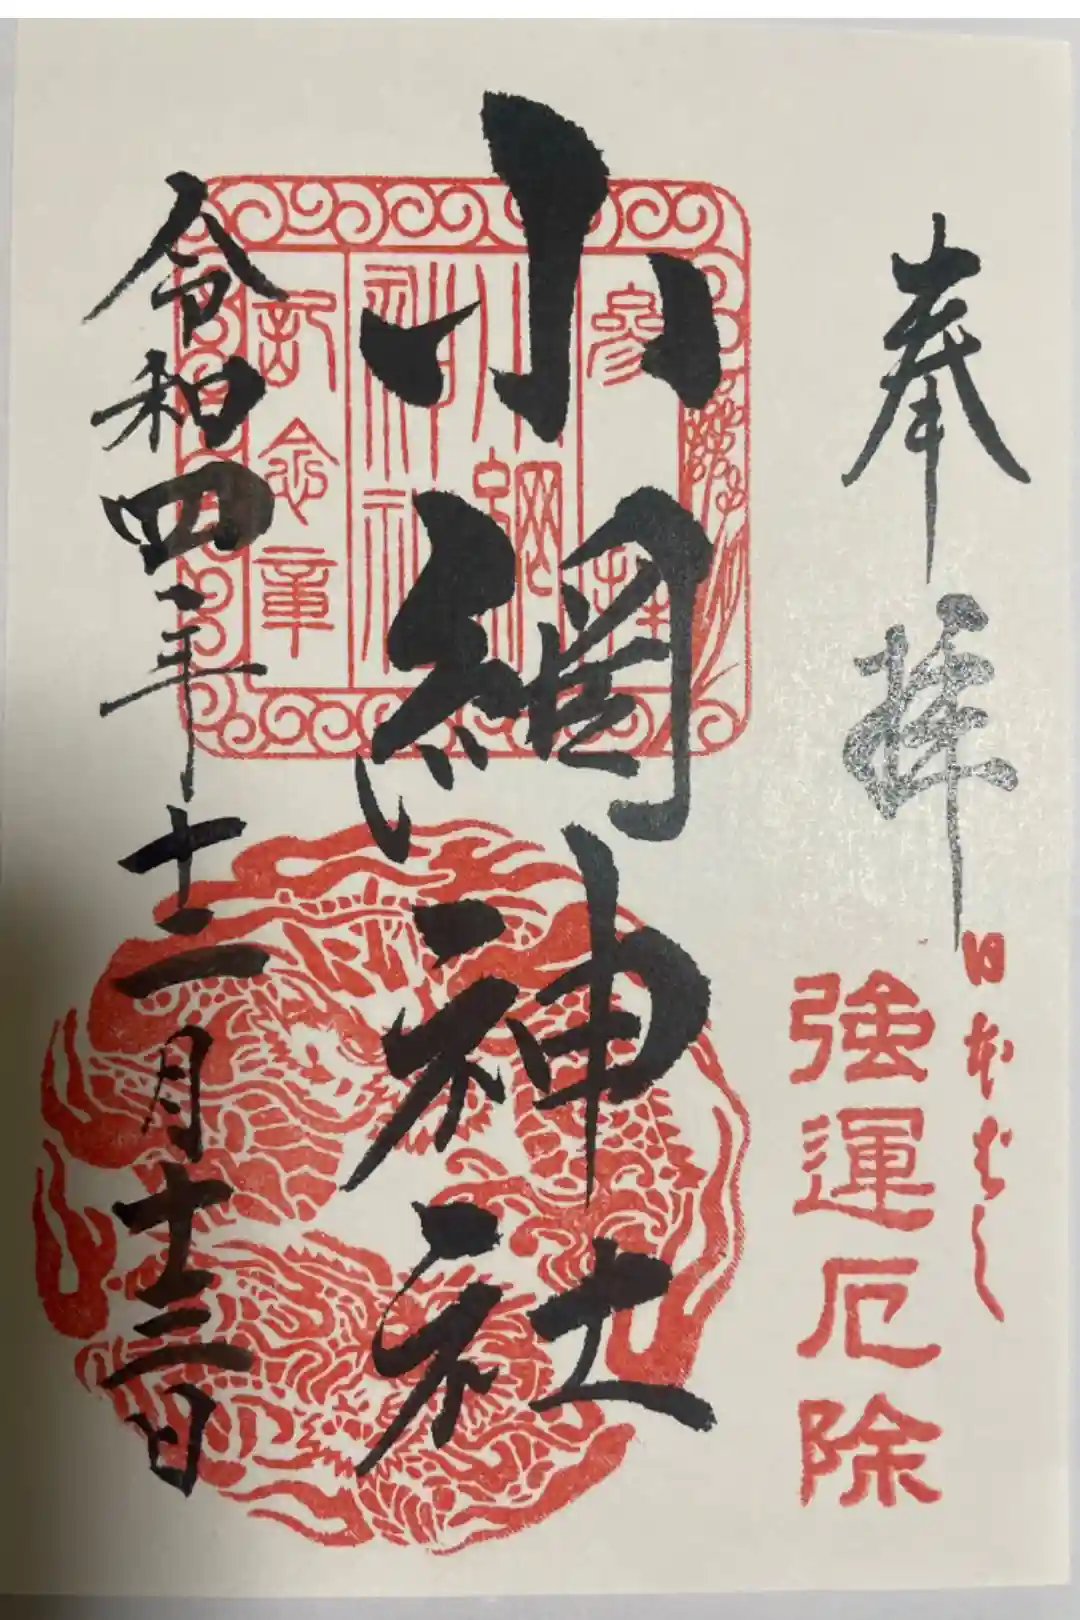 奉拝
日本ばし
強運厄除
小網神社
參拝
小網
神社
記念章
令和四年十二月十三日